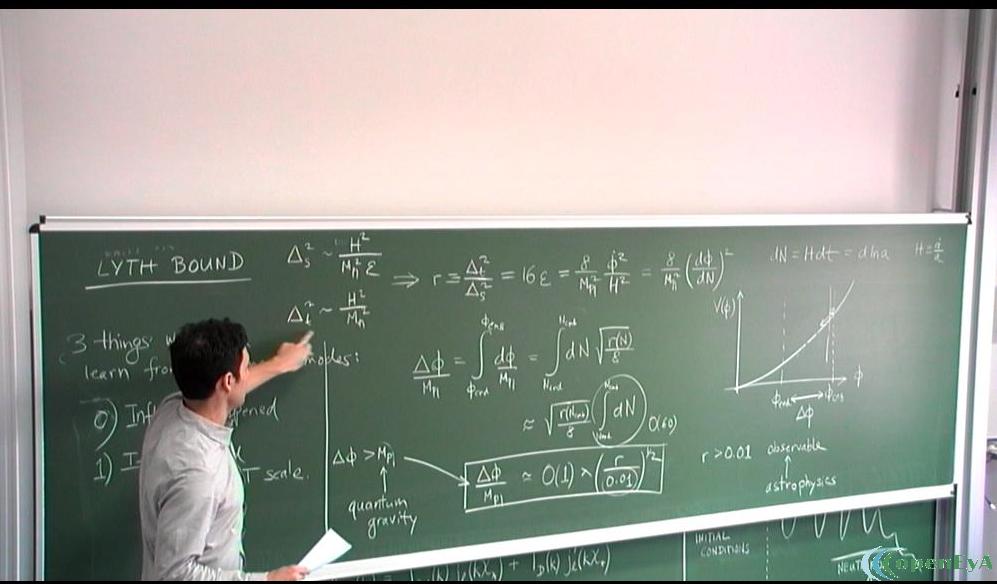 LYTH BOUND
Δ_s^2 ~ H^2 / M_pl^2 ε
Δ_t^2 ~ H^2 / M_pl^2
⇒ r ≡ Δ_t^2 / Δ_s^2 = 16 ε = 8/M_pl^2 φ̇^2/H^2 = 8/M_pl^2 (dφ/dN)^2
dN = H dt = d ln a
H = ȧ/a
3 things
learn modes:
0) Inf pened
1) T scale.
Δφ/M_pl = ∫_{φ_end}^{φ_cmb} dφ/M_pl = ∫_{N_end}^{N_cmb} dN √(r(N)/8)
≈ √(r(N_cmb)/8) ∫_{N_end}^{N_cmb} dN O(60)
Δφ > M_pl
quantum
gravity
Δφ/M_pl ≃ O(1) × (r/0.01)^{1/2}
V(φ)
φ
φ_end φ_CMB
Δφ
r > 0.01 observable
astrophysics
INITIAL
CONDITIONS
NEUT
openEyA